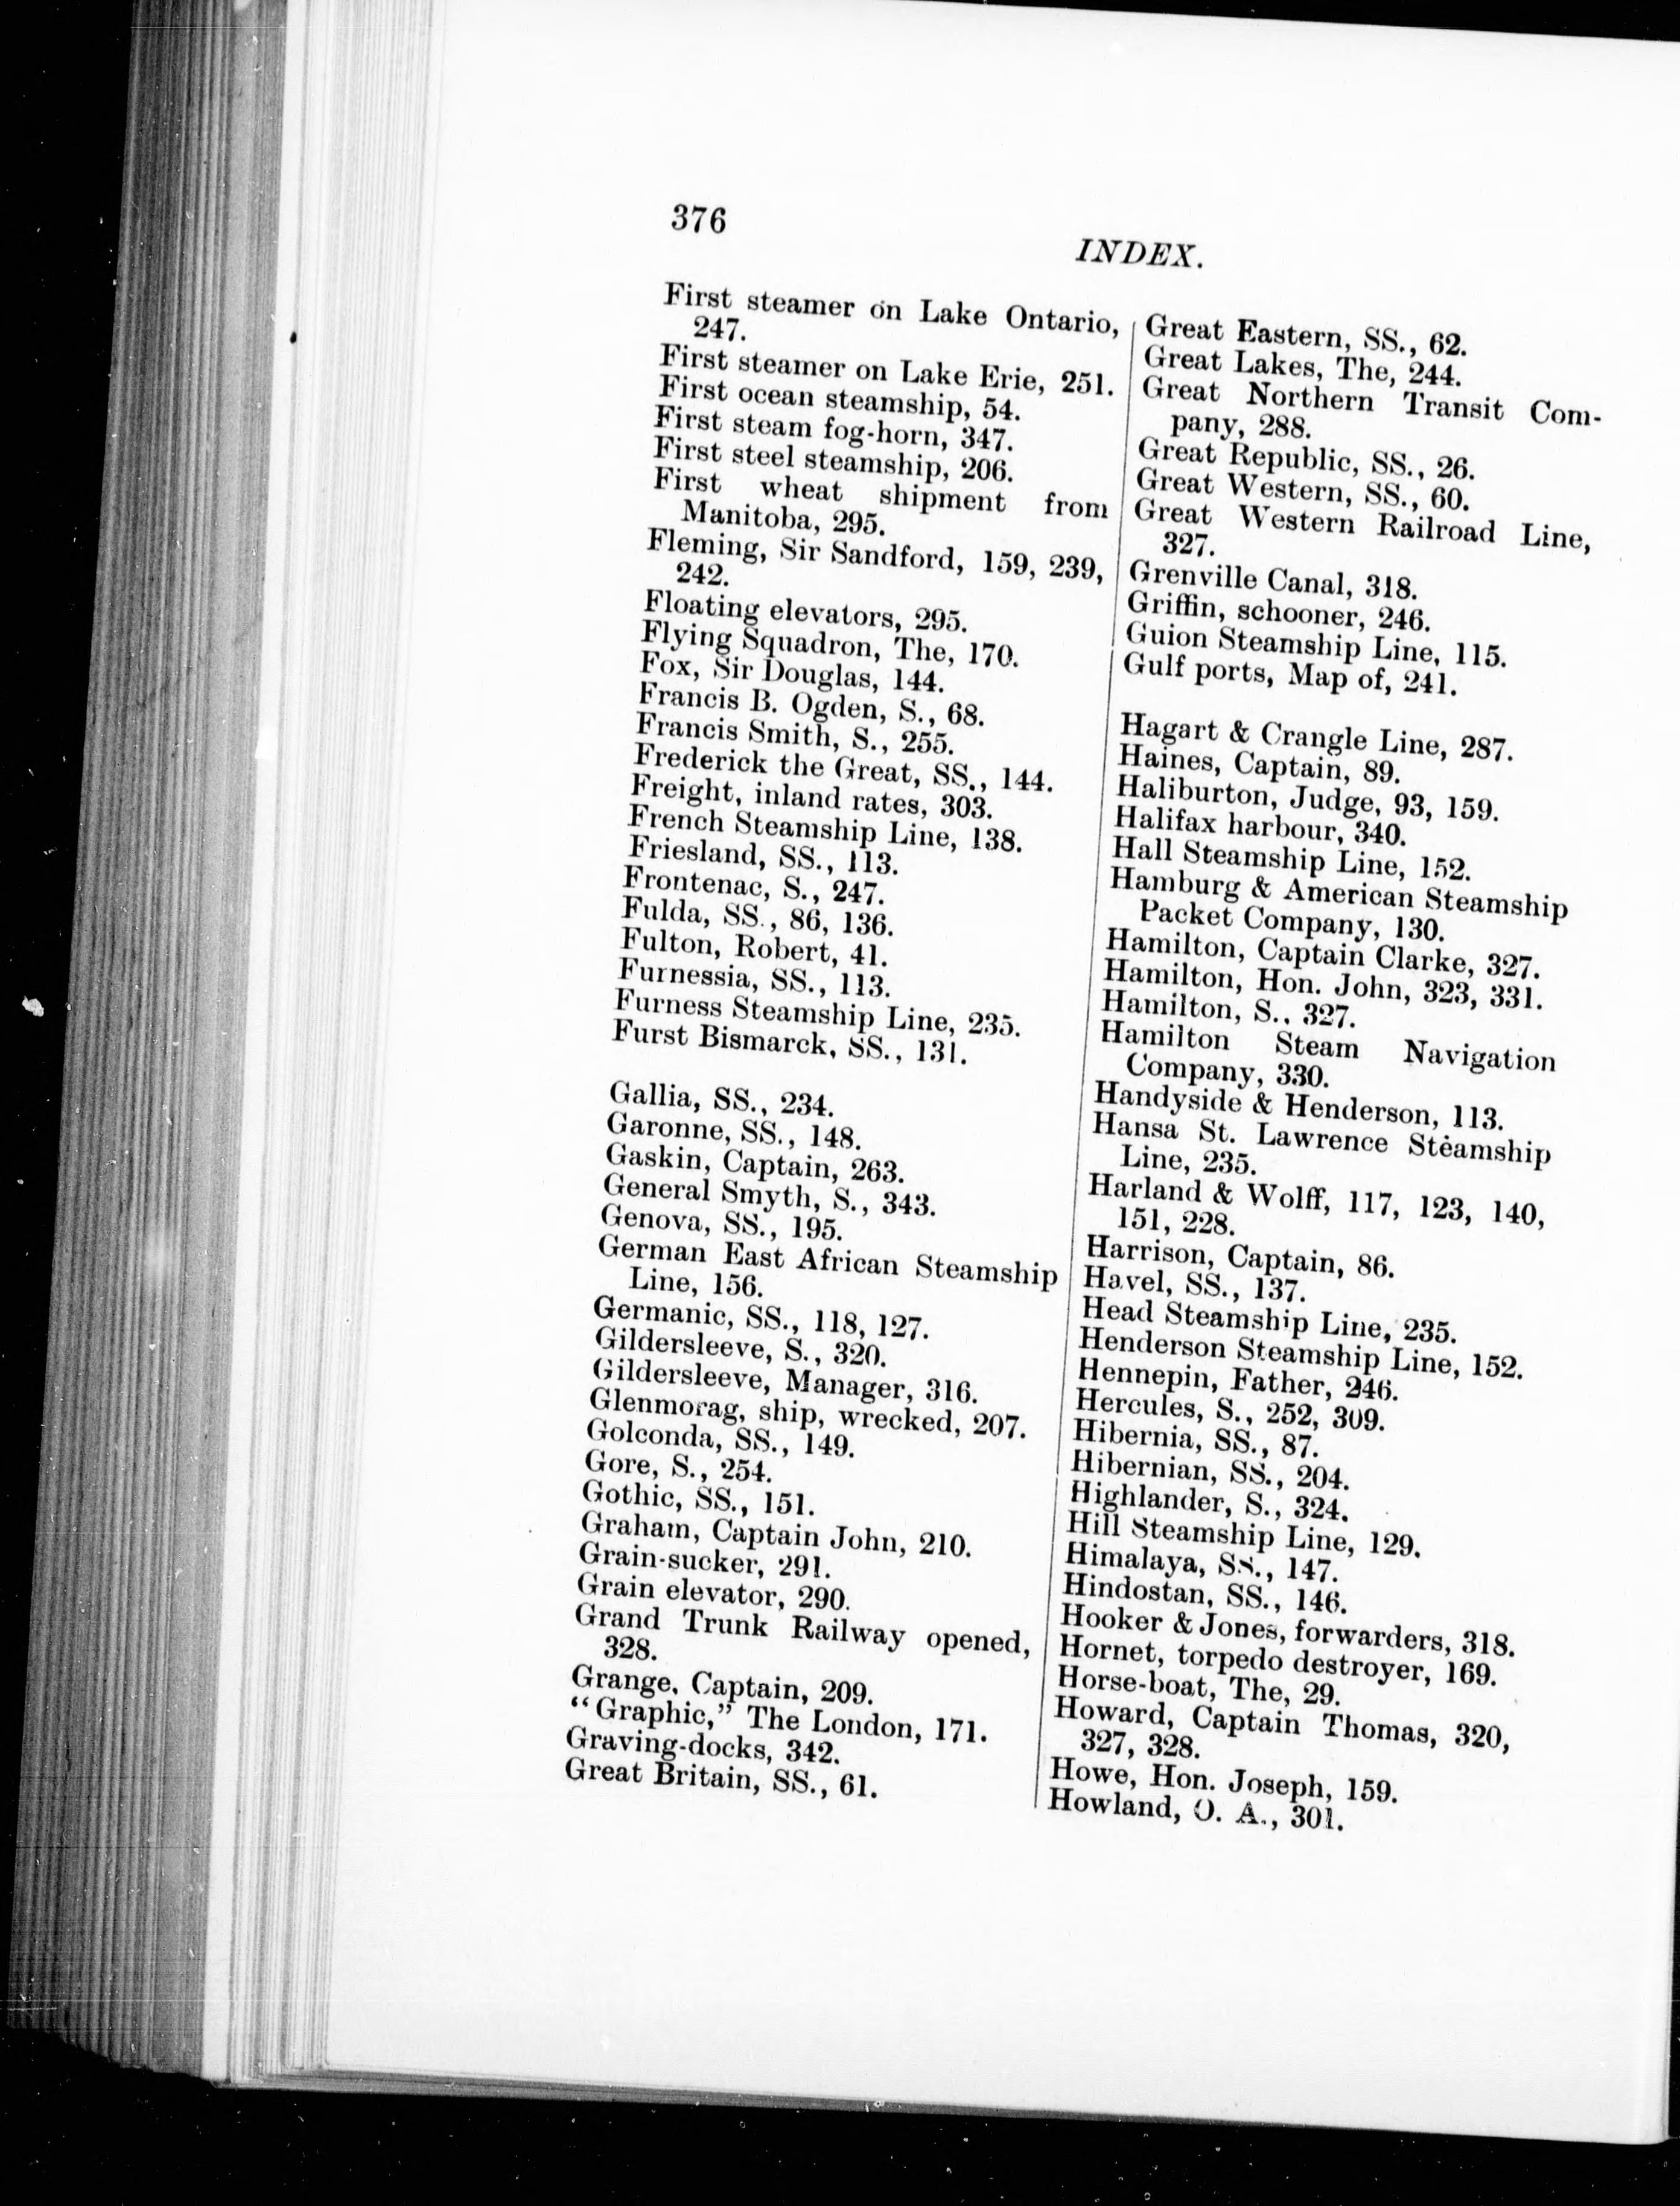 376
INDEX.
First steamer on Lake Ontario,
247.
First steamer on Lake Erie, 251.
First ocean steamship, 54.
First steam fog-horn, 347.
First steel steamship, 206.
First wheat shipment from
Manitoba, 295.
Fleming, Sir Sandford, 159, 239,
242.
Floating elevators, 295.
Flying Squadron, The, 170.
Fox, Sir Douglas, 144.
Francis B. Ogden, S., 68.
Francis Smith, S., 255.
Frederick the Great, SS., 144.
Freight, inland rates, 303.
French Steamship Line, 138.
Friesland, SS., 113.
Frontenac, S., 247.
Fulda, SS., 86, 136.
Fulton, Robert, 41.
Furnessia, SS., 113.
Furness Steamship Line, 235.
Furst Bismarck, SS., 131.
Gallia, SS., 234.
Garonne, SS., 148.
Gaskin, Captain, 263.
General Smyth, S., 343.
Genova, SS., 195.
German East African Steamship
Line, 156.
Germanic, SS., 118, 127.
Gildersleeve, S., 320.
Gildersleeve, Manager, 316.
Glenmorag, ship, wrecked, 207.
Golconda, SS., 149.
Gore, S., 254.
Gothic, SS., 151.
Graham, Captain John, 210.
Grain-sucker, 291.
Grain elevator, 290.
Grand Trunk Railway opened,
328.
Grange, Captain, 209.
"Graphic," The London, 171.
Graving-docks, 342.
Great Britain, SS., 61.
Great Eastern, SS., 62.
Great Lakes, The, 244.
Great Northern Transit Com-
pany, 288.
Great Republic, SS., 26.
Great Western, SS., 60.
Great Western Railroad Line,
327.
Grenville Canal, 318.
Griffin, schooner, 246.
Guion Steamship Line, 115.
Gulf ports, Map of, 241.
Hagart & Crangle Line, 287.
Haines, Captain, 89.
Haliburton, Judge, 93, 159.
Halifax harbour, 340.
Hall Steamship Line, 152.
Hamburg & American Steamship
Packet Company, 130.
Hamilton, Captain Clarke, 327.
Hamilton, Hon. John, 323, 331.
Hamilton, S., 327.
Hamilton Steam Navigation
Company, 330.
Handyside & Henderson, 113.
Hansa St. Lawrence Steamship
Line, 235.
Harland & Wolff, 117, 123, 140,
151, 228.
Harrison, Captain, 86.
Havel, SS., 137.
Head Steamship Line, 235.
Henderson Steamship Line, 152.
Hennepin, Father, 246.
Hercules, S., 252, 309.
Hibernia, SS., 87.
Hibernian, SS., 204.
Highlander, S., 324.
Hill Steamship Line, 129.
Himalaya, SS., 147.
Hindostan, SS., 146.
Hooker & Jones, forwarders, 318.
Hornet, torpedo destroyer, 169.
Horse-boat, The, 29.
Howard, Captain Thomas, 320,
327, 328.
Howe, Hon. Joseph, 159.
Howland, O. A., 301.